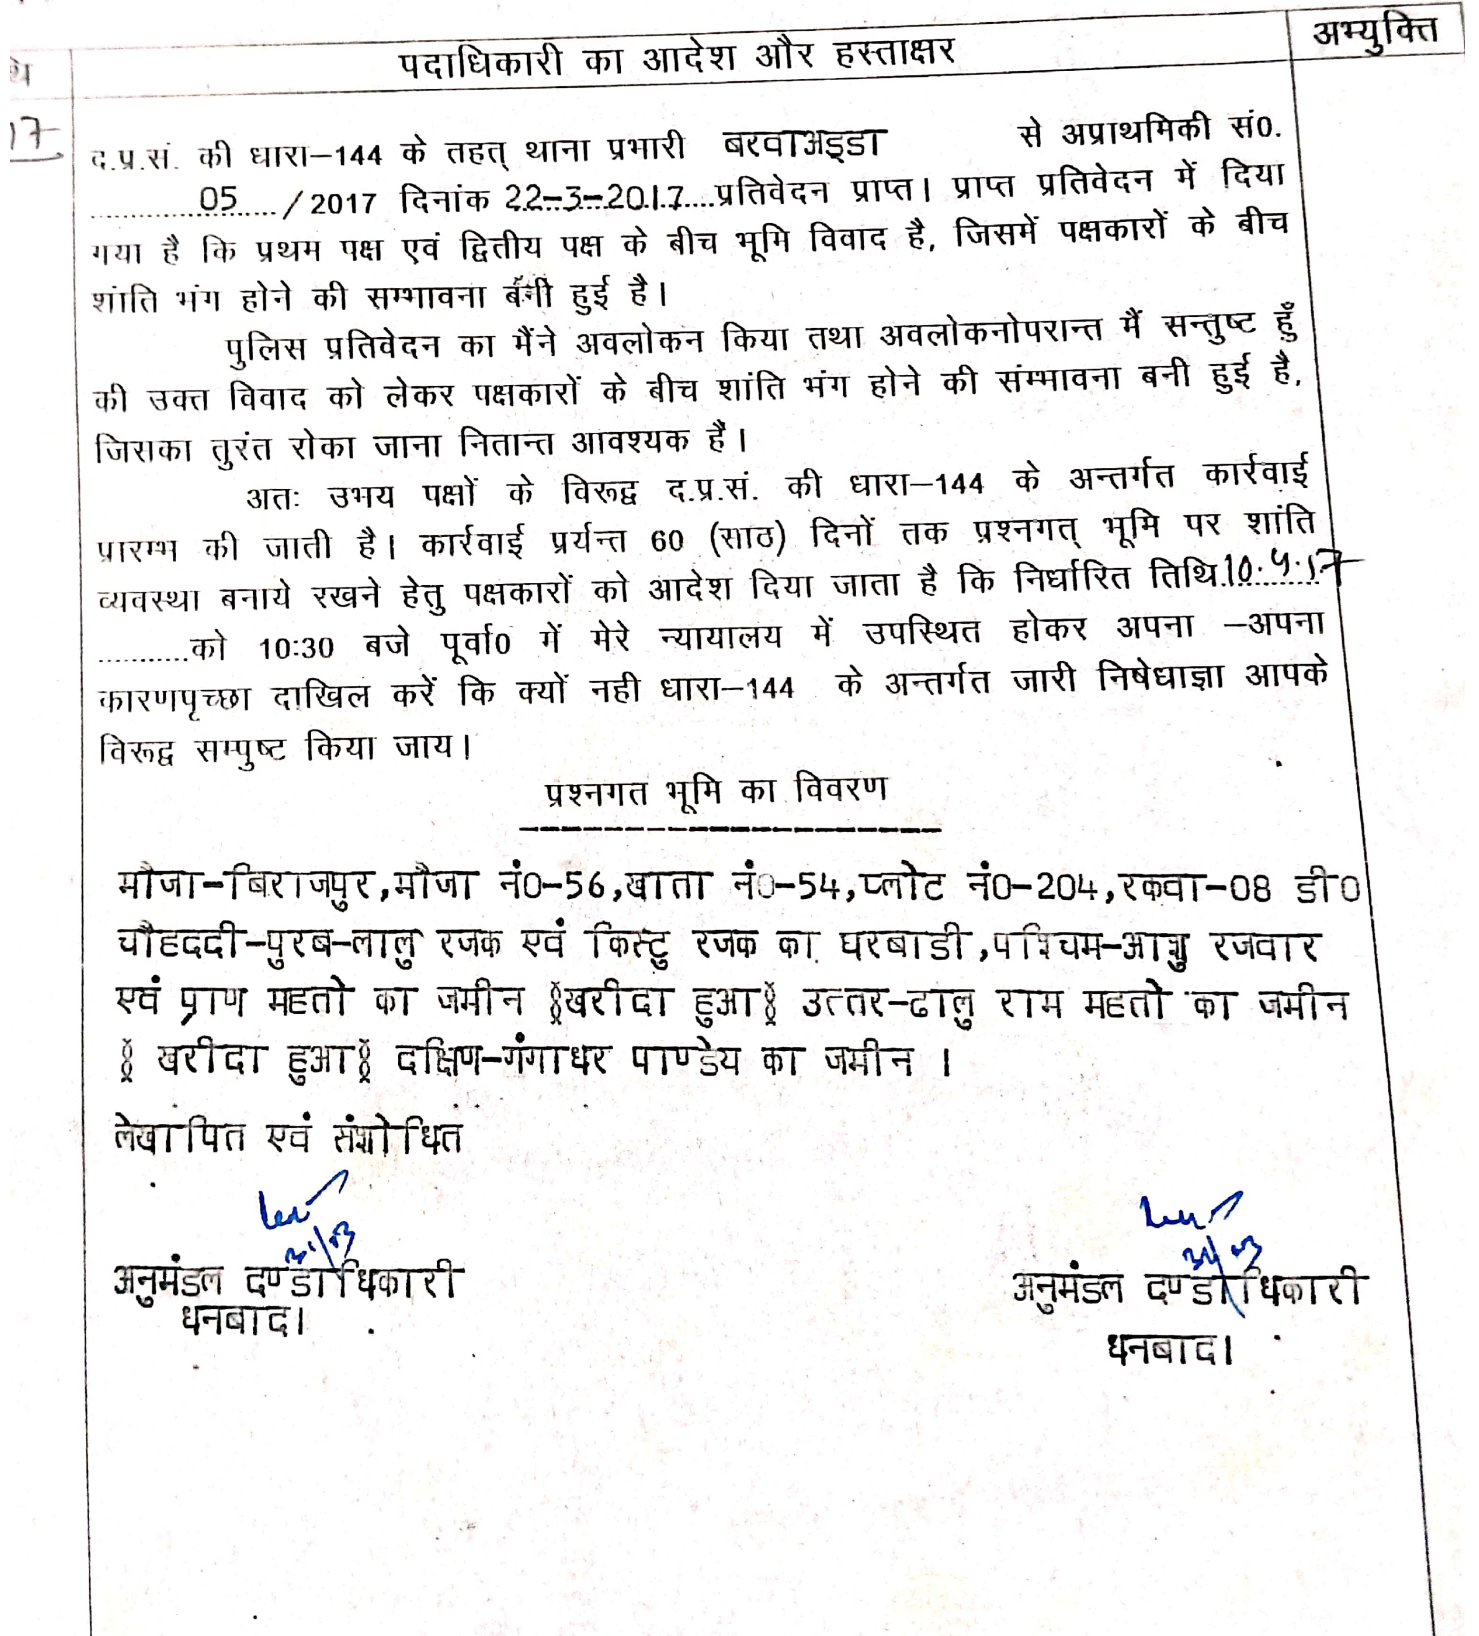 पदाधिकारी का आदेश और हस्ताक्षर
अभ्युक्ति
17
द.प्र.सं. की धारा–144 के तहत् थाना प्रभारी बरवाअड्डा से अप्राथमिकी सं0.
05 / 2017 दिनांक 22-3-2017 प्रतिवेदन प्राप्त। प्राप्त प्रतिवेदन में दिया
गया है कि प्रथम पक्ष एवं द्वितीय पक्ष के बीच भूमि विवाद है, जिसमें पक्षकारों के बीच
शांति भंग होने की सम्भावना बनी हुई है।
पुलिस प्रतिवेदन का मैंने अवलोकन किया तथा अवलोकनोपरान्त मैं सन्तुष्ट हुँ
की उक्त विवाद को लेकर पक्षकारों के बीच शांति भंग होने की संम्भावना बनी हुई है,
जिसका तुरंत रोका जाना नितान्त आवश्यक हैं।
अतः उभय पक्षों के विरूद्व द.प्र.सं. की धारा–144 के अन्तर्गत कार्रवाई
प्रारम्भ की जाती है। कार्रवाई प्रर्यन्त 60 (साठ) दिनों तक प्रश्नगत् भूमि पर शांति
व्यवस्था बनाये रखने हेतु पक्षकारों को आदेश दिया जाता है कि निर्धारित तिथि 10.4.17
...........को 10:30 बजे पूर्वा0 में मेरे न्यायालय में उपस्थित होकर अपना –अपना
कारणपृच्छा दाखिल करें कि क्यों नही धारा–144 के अन्तर्गत जारी निषेधाज्ञा आपके
विरूद्व सम्पुष्ट किया जाय।
प्रश्नगत भूमि का विवरण
मौजा-बिराजपुर,मौजा नं0-56,खाता नं0-54,प्लोट नं0-204,रकवा-08 डी0
चौहददी-पुरब-लालु रजक एवं किस्टु रजक का घरबाडी,पश्चिम-आशु रजवार
एवं प्राण महतो का जमीन (खरीदा हुआ) उत्तर-ढालु राम महतो का जमीन
( खरीदा हुआ) दक्षिण-गंगाधर पाण्डेय का जमीन ।
लेखापित एवं संशोधित
अनुमंडल दण्डाधिकारी
धनबाद।
अनुमंडल दण्डाधिकारी
धनबाद।